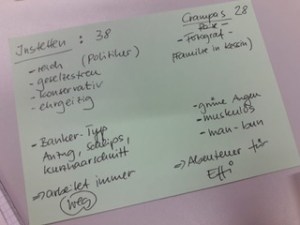 Instetten : 38
- reich (Politiker)
- gesetzestreu
- konservativ
- ehrgeizig
- Banker-Typ
Anzug, Schlips,
kurzhaarschnitt
⇒ arbeitet immer
weg
Crampas 28
- Fotograf -
(Familie in Kessin)
- grüne Augen
- muskulös
- man-bun
⇒ Abenteuer für
Effi